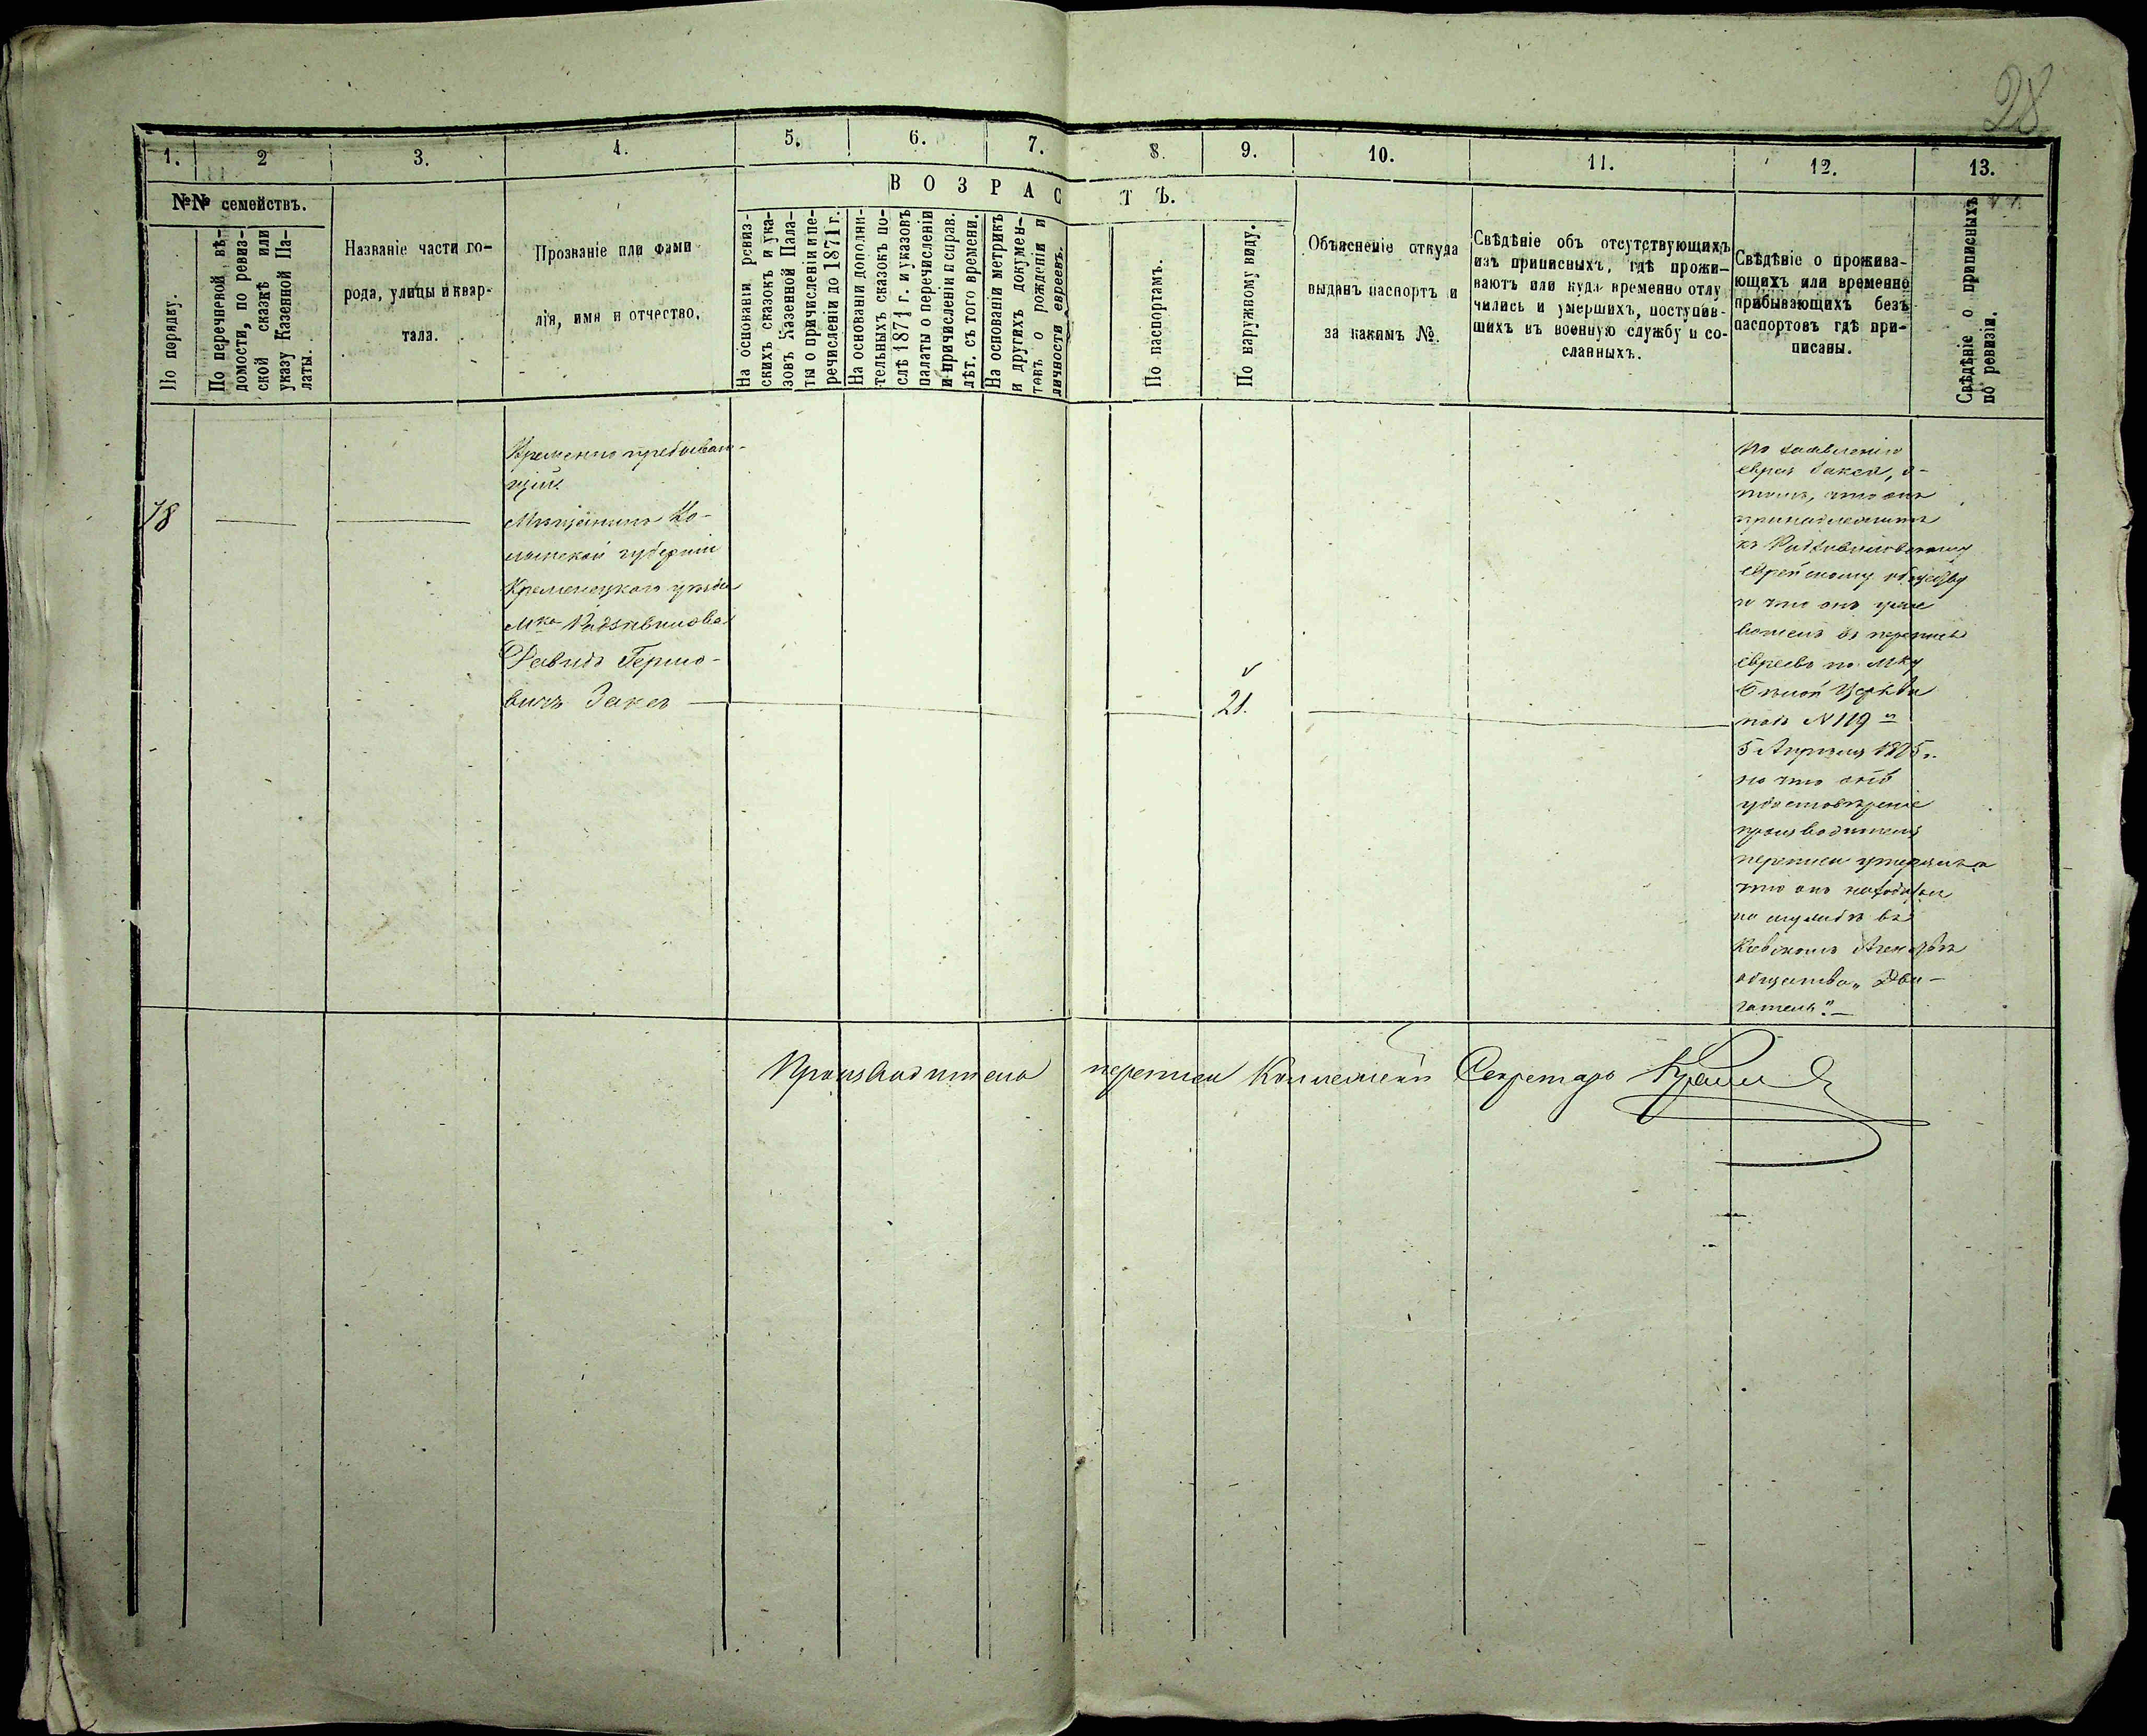 28
1. 2 3. 4. 5. 6. 7. 8. 9. 10. 11. 12. 13.
№№ семействъ.
По порядку.
По перечневой вѣ-
домости, по ревиз-
ской сказкѣ или
указу Казенной Па-
латы.
Названіе части го-
рода, улицы и квар-
тала.
Прозваніе или фами-
лія, имя и отчество.
ВОЗРАСТЪ.
На основаніи ревиз-
скихъ сказокъ и ука-
зовъ Казенной Пала-
ты о причисленіи и пе-
речисленіи до 1871 г.
На основаніи дополни-
тельныхъ сказокъ по-
слѣ 1871 г. и указовъ
палаты о перечисленіи
и причисленіи и справ.
лѣт. съ того времени.
На основаніи метрикъ
и другихъ докумен-
товъ о рожденіи и
личности евреевъ.
По паспортамъ.
По наружному виду.
Объясненіе откуда
выданъ паспортъ и
за какимъ №.
Свѣдѣніе объ отсутствующихъ
изъ приписныхъ, гдѣ прожи-
ваютъ или куда временно отлу
чились и умершихъ, поступив-
шихъ въ военную службу и со-
сланныхъ.
Свѣдѣніе о прожива-
ющихъ или временно
прибывающихъ безъ
паспортовъ гдѣ при-
писаны.
Свѣдѣніе о приписныхъ
по ревизіи.
Временно пребываю-
щій
78
Мѣщанинъ Во-
лынской губерніи
Кременецкаго уѣзда
Мка Радзивилова
Давидъ Гершо-
вичъ Заксъ
21.
По заявленію
еврея Закса, о-
томъ, что онъ
принадлежитъ
къ Радзивиловскому
еврейскому обществу
и что онъ уже
вошелъ въ перепись
евреевъ по Мку
Бѣлой Церкви
подъ N 119
5 Апрѣля 1875 г.
но что
удостовѣреніе
производителя
переписи
что онъ находится
на службѣ въ
Кіевскомъ Агенствѣ
общества „Дви-
гатель".
Производитель переписи Коллежскій Секретарь